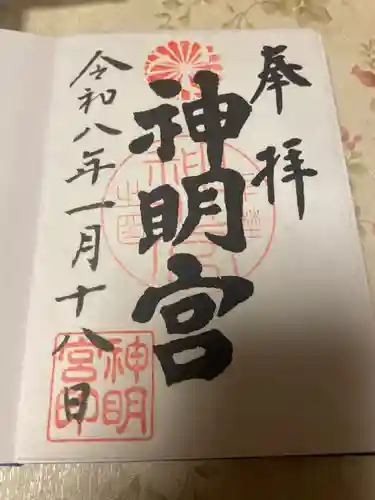 奉拝
神明宮
令和八年一月十八日
神明
宮印